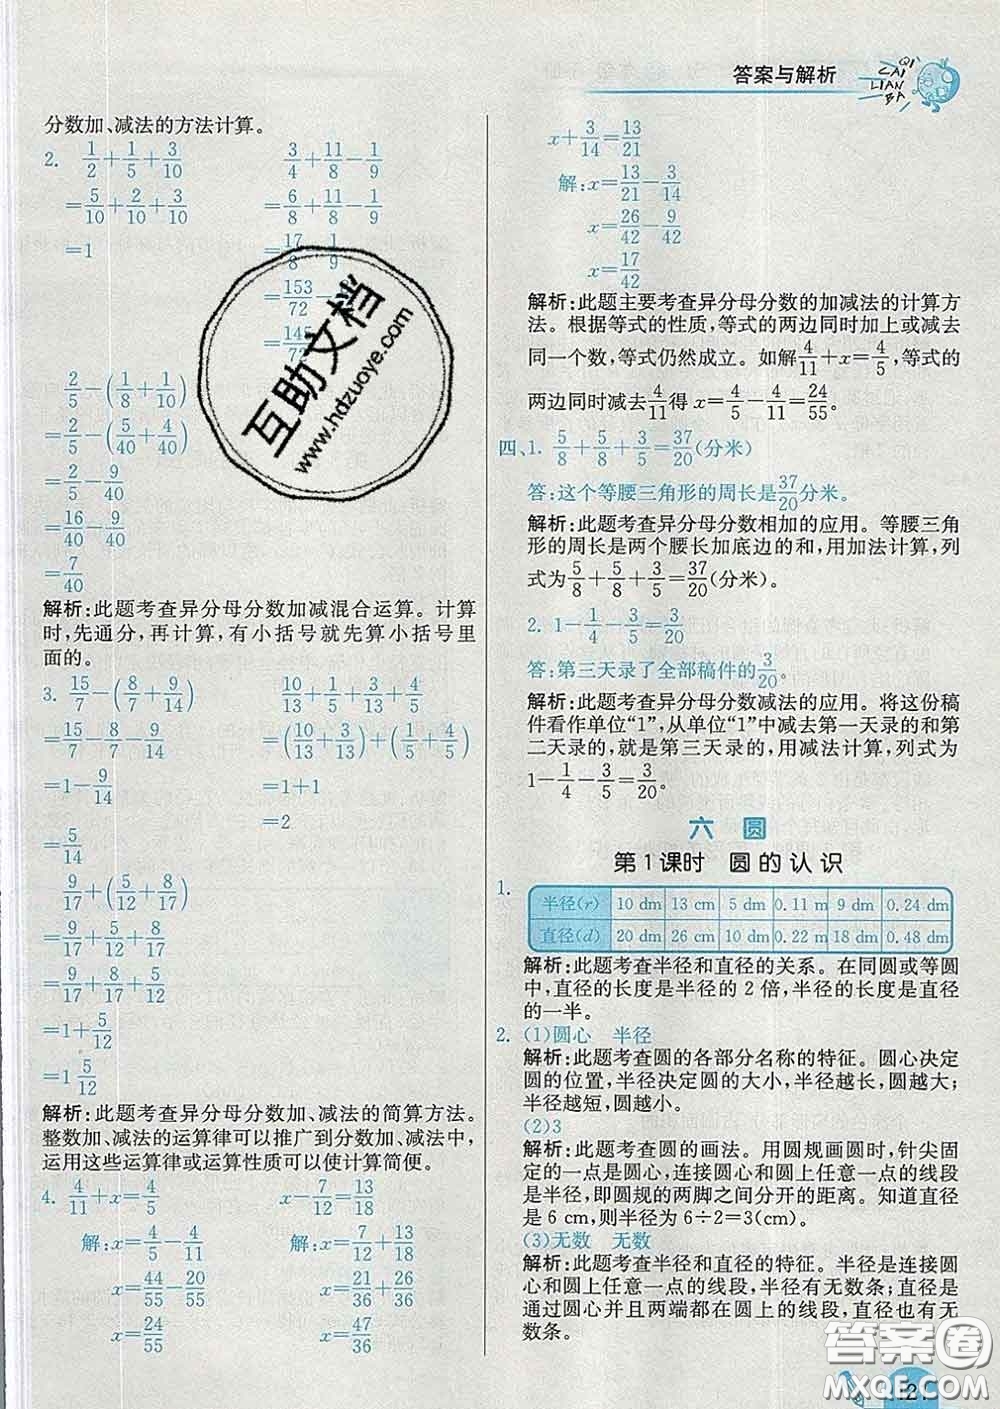 答案与解析
QI CAI LIAN BA
分数加、减法的方法计算。
2. 1/2+1/5+3/10  3/4+11/8-1/9
=5/10+2/10+3/10  =6/8+11/8-1/9
=1  =17/8-1/9
=153/72-
=145/72
2/5-(1/8+1/10)
=2/5-(5/40+4/40)
=2/5-9/40
=16/40-9/40
=7/40
解析:此题考查异分母分数加减混合运算。计算
时,先通分,再计算,有小括号就先算小括号里
面的。
3. 15/7-(8/7+9/14)  10/13+1/5+3/13+4/5
=15/7-8/7-9/14  =(10/13+3/13)+(1/5+4/5)
=1-9/14  =1+1
=5/14  =2
9/17+(5/12+8/17)
=9/17+5/12+8/17
=9/17+8/17+5/12
=1+5/12
=1 5/12
解析:此题考查异分母分数加、减法的简算方法。
整数加、减法的运算律可以推广到分数加、减法中,
运用这些运算律或运算性质可以使计算简便。
4. 4/11+x=4/5  x-7/12=13/18
解:x=4/5-4/11  解:x=7/12+13/18
x=44/55-20/55  x=21/36+26/36
x=24/55  x=47/36
x+3/14=13/21
解:x=13/21-3/14
x=26/42-9/42
x=17/42
解析:此题主要考查异分母分数的加减法的计算方
法。根据等式的性质,等式的两边同时加上或减去
同一个数,等式仍然成立。如解4/11+x=4/5,等式的
两边同时减去4/11得 x=4/5-4/11=24/55。
四、1. 5/8+5/8+3/5=37/20(分米)
答:这个等腰三角形的周长是37/20分米。
解析:此题考查异分母分数相加的应用。等腰三角
形的周长是两个腰长加底边的和,用加法计算,列
式为5/8+5/8+3/5=37/20(分米)。
2. 1-1/4-3/5=3/20
答:第三天录了全部稿件的3/20。
解析:此题考查异分母分数减法的应用。将这份稿
件看作单位“1”,从单位“1”中减去第一天录的和第
二天录的,就是第三天录的,用减法计算,列式为
1-1/4-3/5=3/20。
六 圆
第1课时 圆的认识
1.
半径(r) 10 dm 13 cm 5 dm 0.11 m 9 dm 0.24 dm
直径(d) 20 dm 26 cm 10 dm 0.22 m 18 dm 0.48 dm
解析:此题考查半径和直径的关系。在同圆或等圆
中,直径的长度是半径的 2 倍,半径的长度是直径
的一半。
2. (1)圆心 半径
解析:此题考查圆的各部分名称的特征。圆心决定
圆的位置,半径决定圆的大小,半径越长,圆越大;
半径越短,圆越小。
(2)3
解析:此题考查圆的画法。用圆规画圆时,针尖固
定的一点是圆心,连接圆心和圆上任意一点的线段
是半径,即圆规的两脚之间分开的距离。知道直径
是 6 cm,则半径为 6÷2=3(cm)。
(3)无数 无数
解析:此题考查半径和直径的特征。半径是连接圆
心和圆上任意一点的线段,半径有无数条;直径是
通过圆心并且两端都在圆上的线段,直径也有无
数条。
互助文档
www.hdzuoye.com
答案圈
MXQE.COM